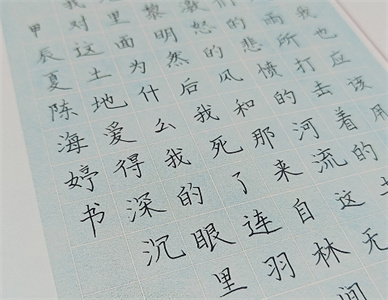 我也应该用
雨所打击着的土
们的悲愤的河流这无
激怒的风和那来自林间
黎明然后我死了连羽
里面为什么我的眼里
我对这土地爱得深沉
甲辰夏陈海婷书